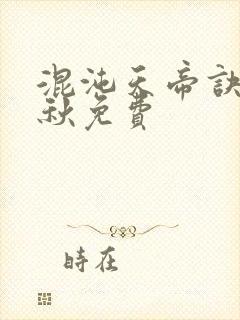 混沌天帝訣
秋免費
時在